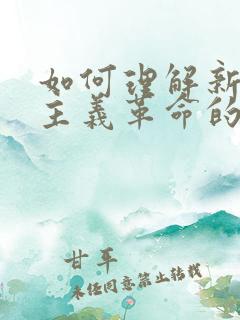 如何理解新
主义革命的
甘平
未经同意禁止转载